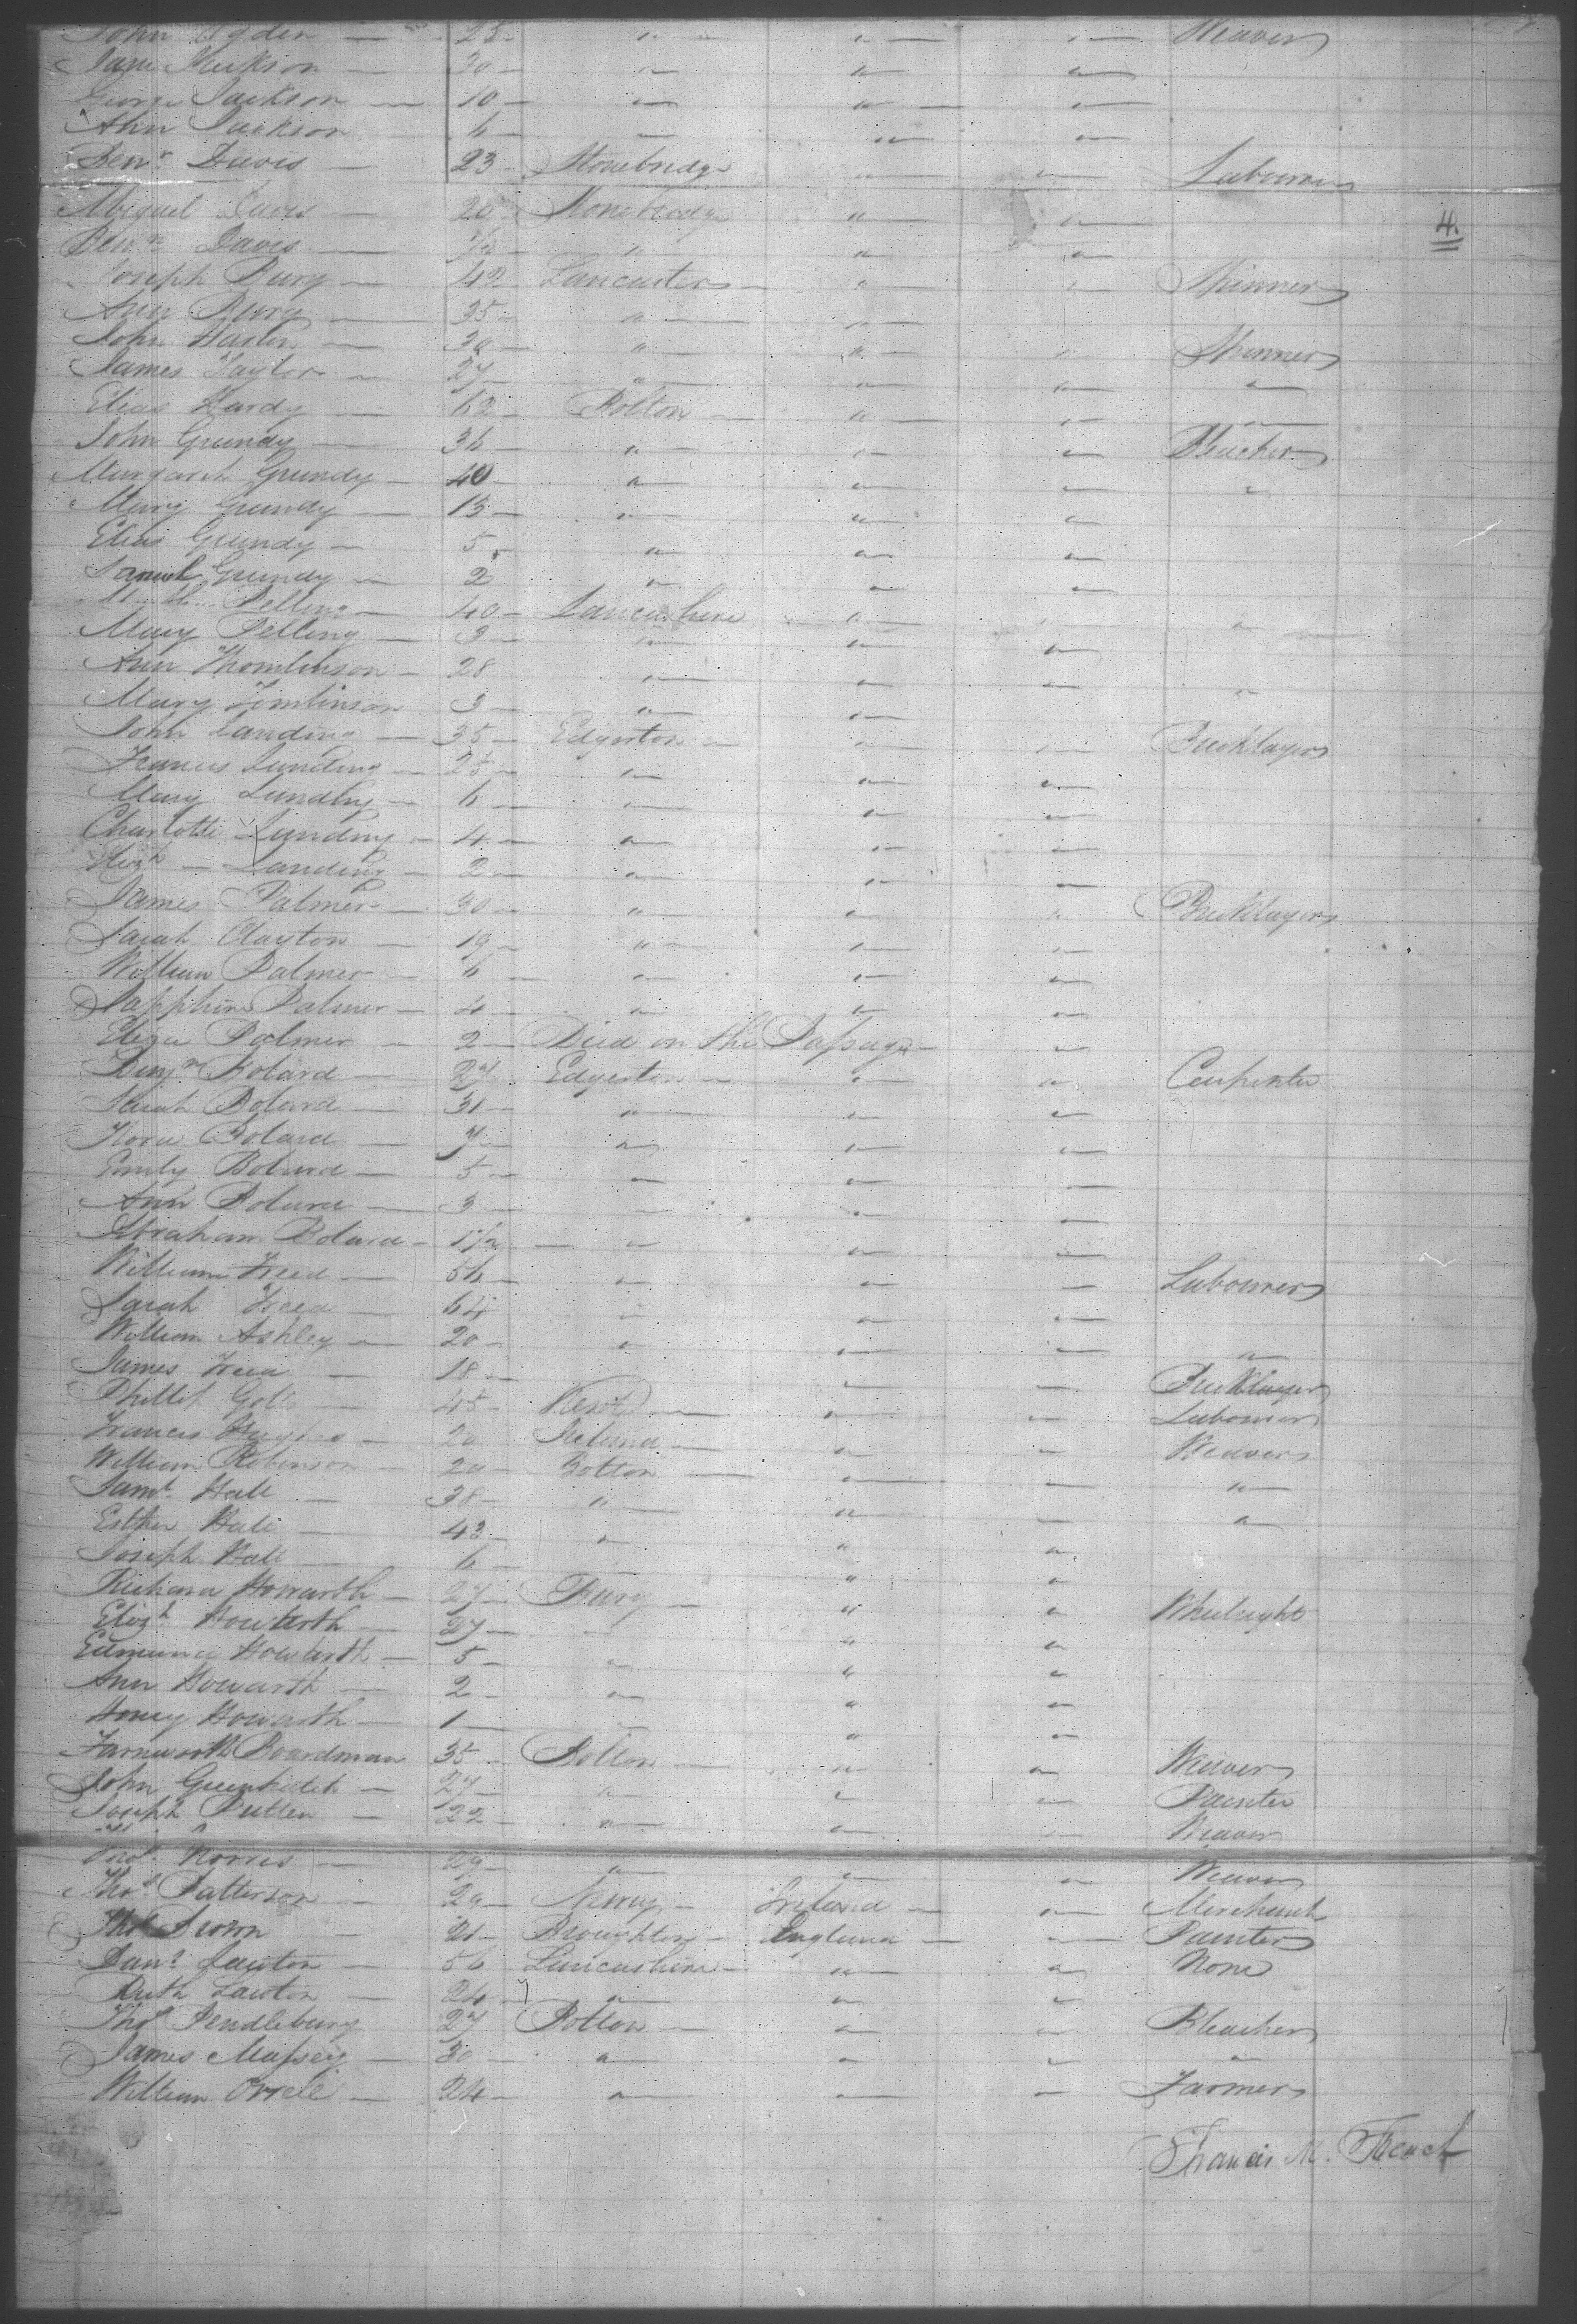 John Ogden — 25 — " — " — " — Weaver
Jane Jackson — 30 — " — " — "
George Jackson — 10 — " — " — "
Ann Jackson 6 — " — " — "
Benn. Davis — 23 Stonebridge " — " — Labourer
Abigail Davis — 20 Stonebridge " — " —
4.
Benn. Davis — 1/2 " — " — "
Joseph Bury — 42 Lancaster — " — " — Spinner
Ann Bury — 35 — " — " —
John — 30 — " — " — " — Spinner
James Taylor — 27 " — " — " — "
Elias Hardy — 62 — Bolton — " — " — "
John Grundy — 36 — " — " — " — Bleacher
Margaret Grundy — 40 — " — " — " — "
Mary Grundy — 13 — " — " — "
Elias Grundy — 5 — " — " — "
Samuel Grundy — 2 " — " — "
Pelling — 40 — Lancashire " — " — "
Mary Pelling — 3 — " — " — "
Ann Thomlinson — 28 " — " — " — "
Mary Tomlinson 3 — " — " —
John Landing — 35 — Edgerton — " — " — Bricklayer
Francis Landing — 25 — " — " — "
Mary Landing — 6 — " — " — "
Charlotte Landing — 4 — " — " — "
Elizh — Landing — 2 — " — " — "
James Palmer — 30 — " — " — " Bricklayer
Sarah Clayton — 19 — " — " — "
William Palmer — 6 — " — " — "
Sapphira Palmer — 4 — " — " — "
Eliza Palmer — 2 — Died on the Passage — "
Benjn Bolard — 27 Edgerton — " — " Carpenter
Sarah Bolard — 31 — " — " — "
Bolard — 7 — " — " — "
Emily Bolard — 5 — " — " — "
Ann Bolard — 3 — " — " — "
Abraham Bolard — 1 1/2 — " — " — "
William Freed — 56 — " — " — Labourer
Sarah Freed — 64 " — " — "
William Ashley — 20 — " — " — " — "
James Freed — 18 — " — " — Bricklayer
Phillip 45 — Kent — " — " — Labourer
Francis Hughes — 20 Ireland — " — " — Weaver
William Robinson — 20 — Bolton — " — " — "
Saml. Hall — 38 — " — " — " — "
Esther Hall — 43 — " — " "
Joseph Hall — 6 — " "
Richard Howarth — 27 — Bury — " " Wheelright
Elizh Howarth — 27 — " "
Edmund Howarth — 5 — " " "
Ann Howarth — 2 — " " "
Howarth — 1 — " "
Farnworth Boardman 35 — Bolton — " — " Weaver
John Greenhalch — 27 — " — " — " — Painter
Joseph Pullen — 22 — " — " — " — Weaver
Thos. Norris — 29 — " — " — " — Weaver
Thos. Patterson — 20 — Newry — Ireland — " — Merchant
Brown 21 — Broughton — England — " — Painter
Danl. Lawton — 56 — Lancashire — " — " — None
Ruth Lawton — 24 — " — " — "
Thos Pendlebury 27 Bolton — " — " — Bleacher
James Massey — 30 — " — " — " — "
William Orrell — 24 — " — " — " — Farmer
Francis M. French